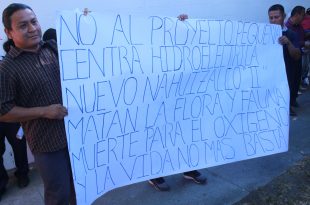 NO AL PROYECTO PEQUEÑA
CENTRA HIDROELECTRICA
NUEVO NAHUIZALCO II
MATAN LA FLORA Y FAUNA
MUERTE PARA EL OXIGENO
Y LA VIDA NO MAS BASTA